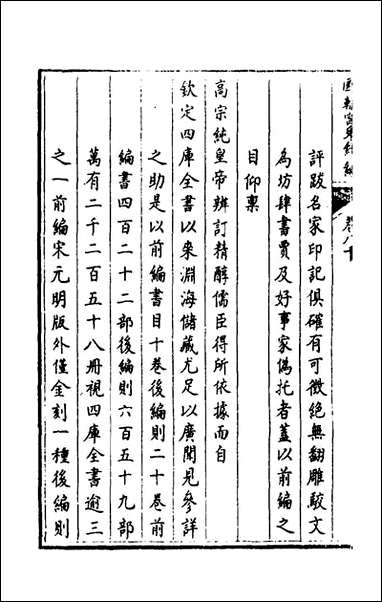 國朝宮史續編 卷八十
評跋名家印記俱確有可徵絕無翻雕駮文
為坊肆書賈及好事家偽托者蓋以前編之
目仰稟
高宗純皇帝辨訂精醇儒臣得所依據而自
欽定四庫全書以來淵海儲藏尤足以廣聞見參詳
之助是以前編書目十卷後編則二十卷前
編書四百二十二部後編則六百五十九部
萬有二千二百五十八冊視四庫全書逾三
之一前編宋元明版外僅金刻一種後編則